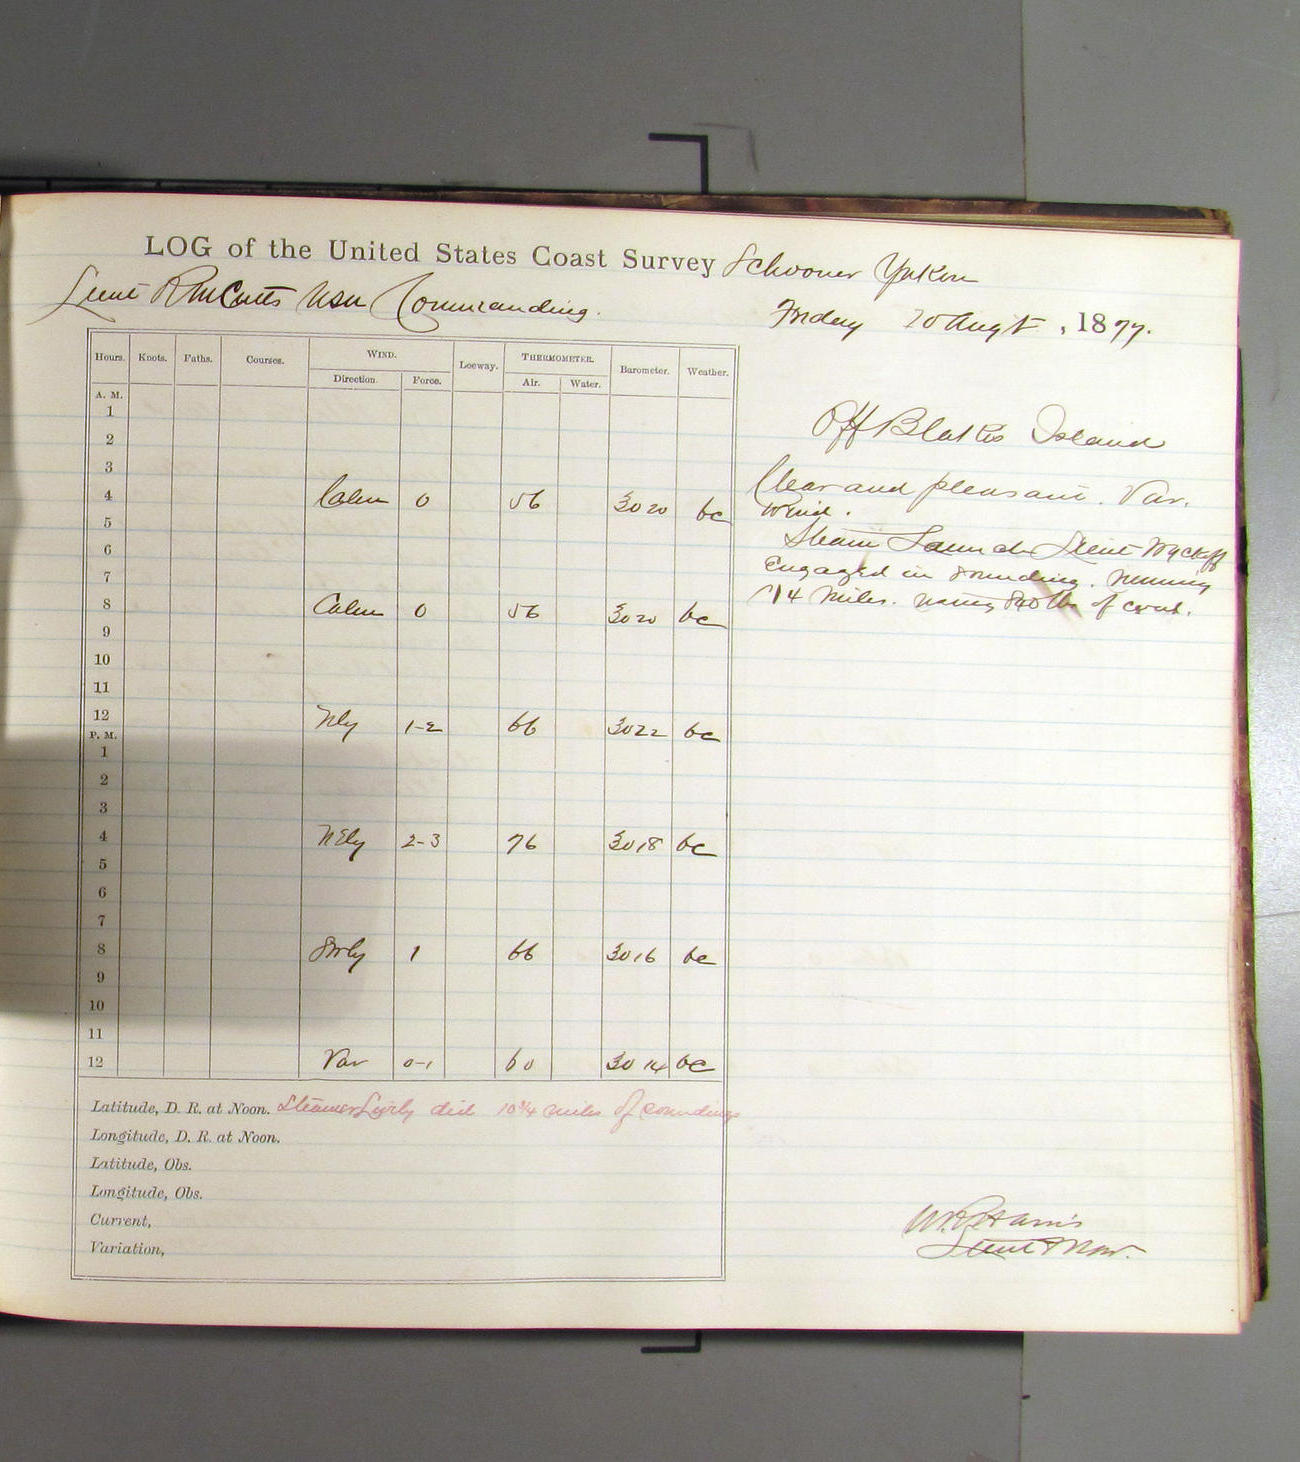 LOG of the United States Coast Survey Schooner Yukon
Lieut R M Cutts USN Commanding.
Friday 10 Augst, 1877.
Hours. Knots. Faths. Courses. WIND. Leeway. THERMOMETER. Barometer. Weather.
Direction. Force. Air. Water.
A. M.
1
2
3
4 Calm 0 56 3020 bc
5
6
7
8 Calm 0 56 3020 bc
9
10
11
12 Nly 1-2 66 3022 bc
P. M.
1
2
3
4 NEly 2-3 76 3018 bc
5
6
7
8 1 66 3016 bc
9
10
11
12 Var 0-1 60 3014 bc
Off Blakes Island
Clear and pleasant. Var.
Wind.
Steam Launch Lieut Wyckoff
Engaged in sounding. running
14 miles. using 840 lbs of coal.
Latitude, D. R. at Noon. Steamer Lively did 10¾ miles of soundings
Longitude, D. R. at Noon.
Latitude, Obs.
Longitude, Obs.
Current,
Variation,
Harris
Lieut